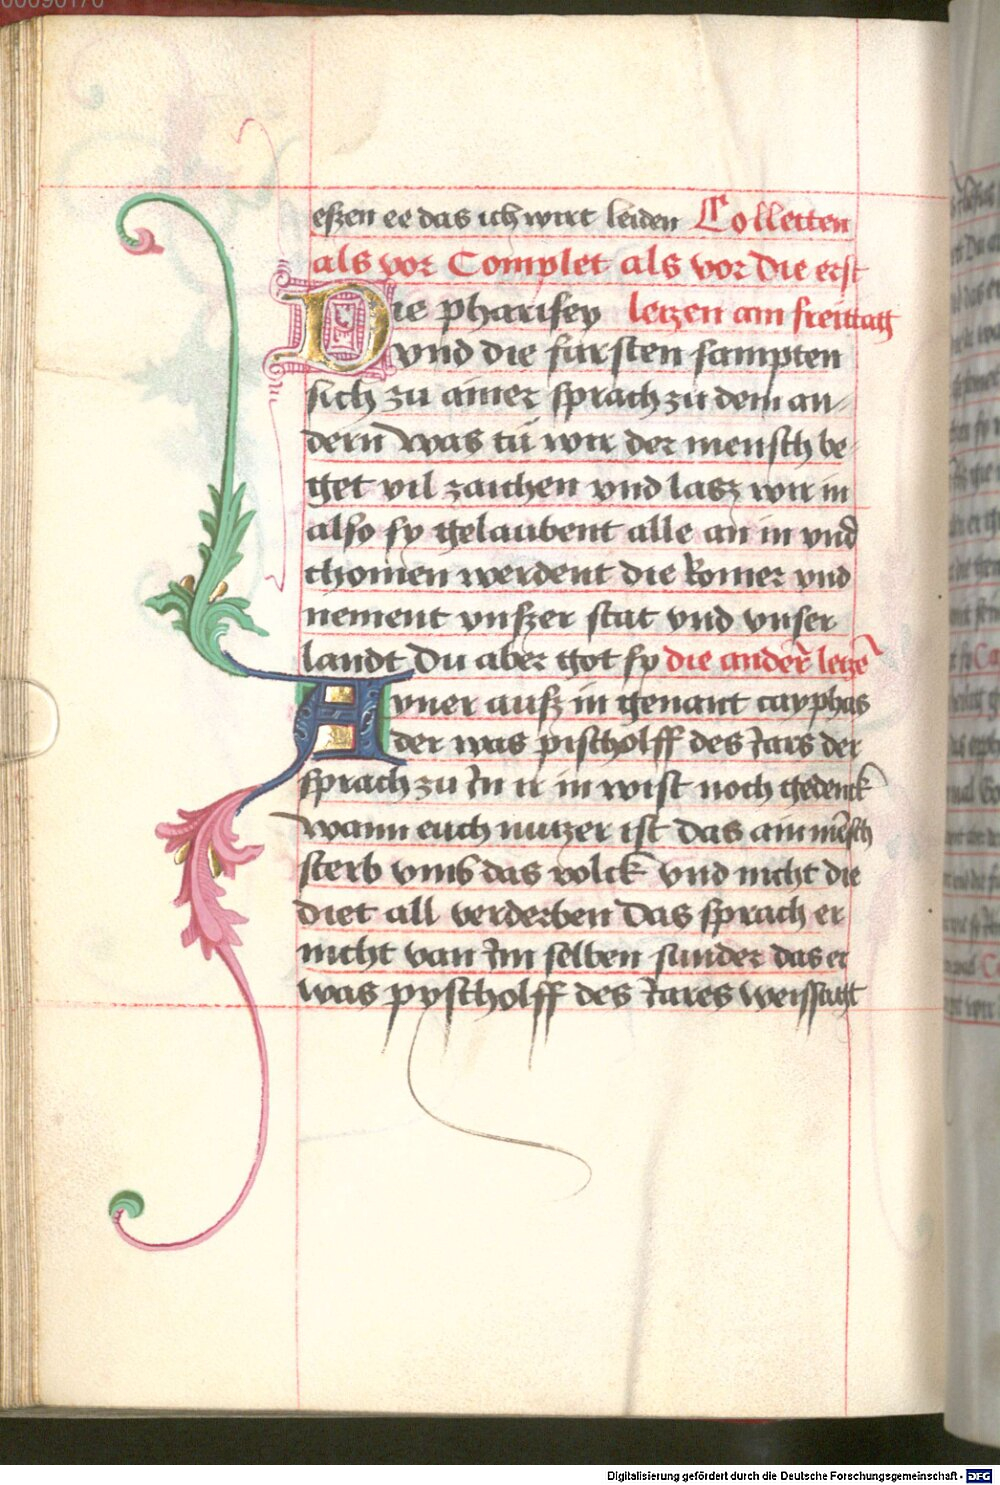 eſzen ee das ich wirt leiden Collecten
als vor Complet als vor die erſt
Die phariſey letzen am freittag
vnd die fürſten ſampten
ſich zu ainer ſprach zu dem an
dern was tü wir der menſch be
get vil zaichen vnd lasz wir in
alſo ſy gelaubent alle an in vnd
chomen werdent die Romer vnd
nement vnſzer ſtat vnd vnſer
landt Du aber got ſy die ander letze
Ayner auſz in genant cayphas
der was piſcholff des Jars der
ſprach zu In ir in wiſt noch gedenck
wann euch nutzer iſt das ain mēſch
ſterb vmb das volck vnd nicht die
diet all verderben Das ſprach er
nicht van Im ſelben ſunder das er
was pyſcholff des Jares weiſſagt
Digitalisierung gefördert durch die Deutsche Forschungsgemeinschaft - DFG